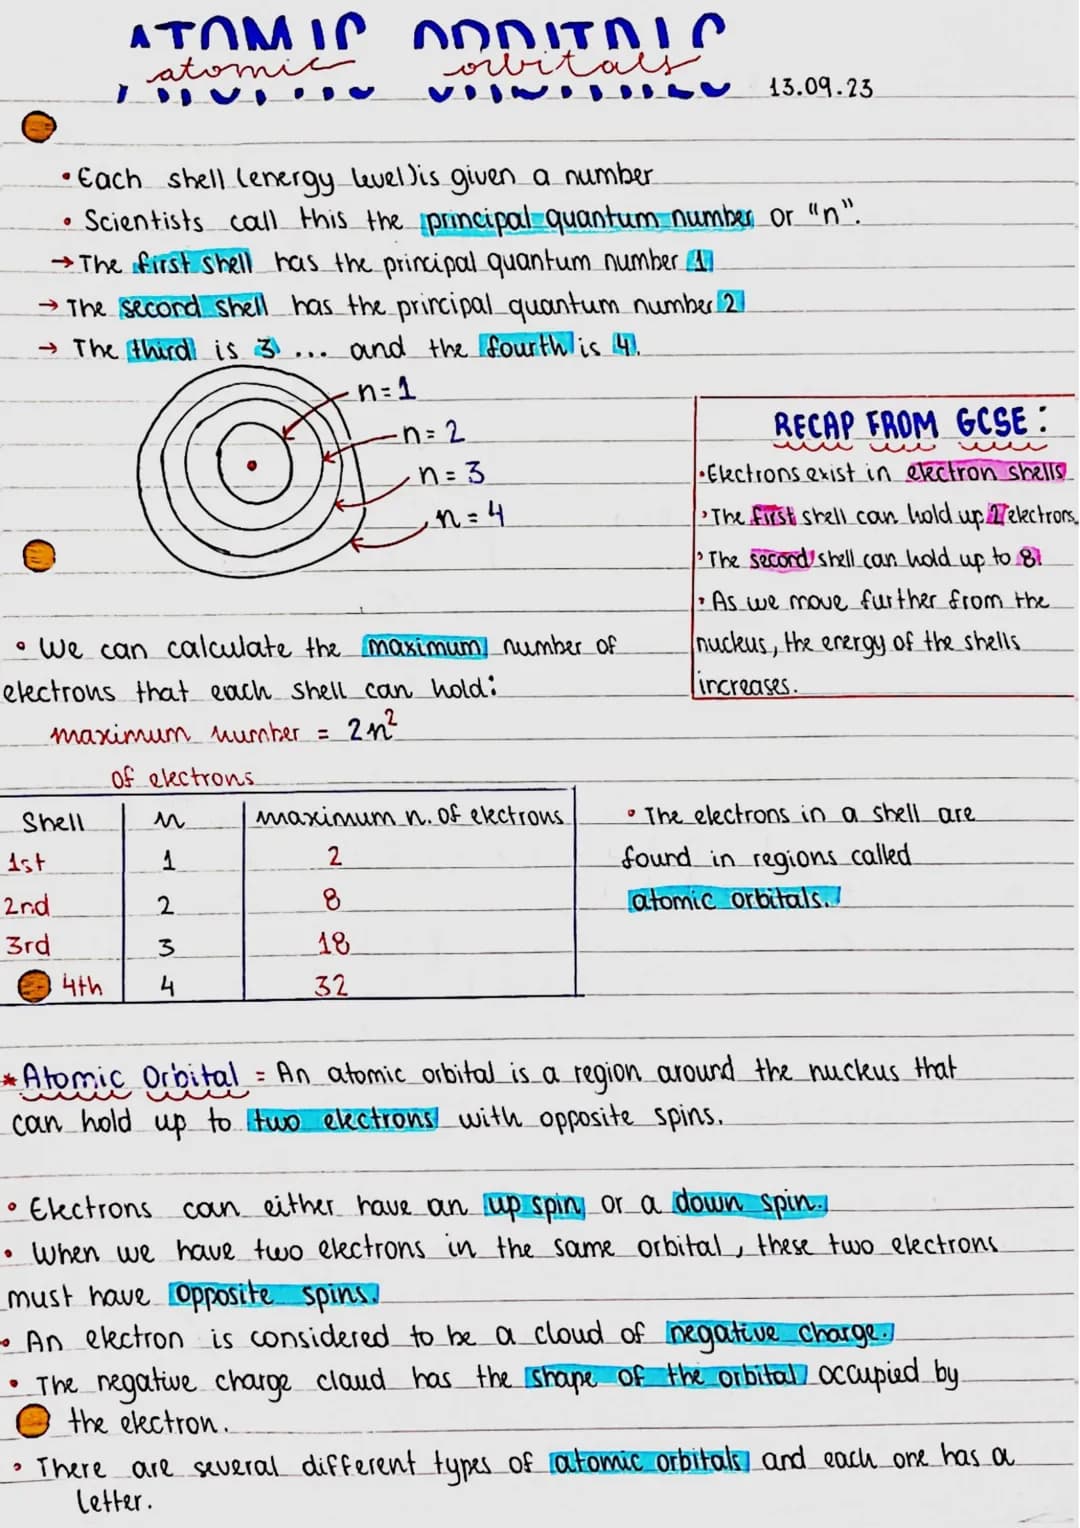 ATOMIC ORBITALS
atomic orbitals
13.09.23
• Each shell (energy level) is given a number
• Scientists call this the principal quantum number or "n".
→ The first shell has the principal quantum number 1
→ The second shell has the principal quantum number 2
→ The third is 3 ... and the fourth is 4.
n = 1
n = 2
n = 3
n = 4
RECAP FROM GCSE:
• Electrons exist in electron shells
• The first shell can hold up 2 electrons.
• The second shell can hold up to 8
• As we move further from the
nucleus, the energy of the shells
increases.
• We can calculate the maximum number of
electrons that each shell can hold:
maximum number = 2n²
of electrons
Shell n maximum n. of electrons
1st 1 2
2nd 2 8
3rd 3 18
4th 4 32
• The electrons in a shell are
found in regions called
atomic orbitals.
* Atomic Orbital = An atomic orbital is a region around the nucleus that
can hold up to two electrons with opposite spins.
• Electrons can either have an up spin or a down spin.
• When we have two electrons in the same orbital, these two electrons
must have opposite spins.
• An electron is considered to be a cloud of negative charge.
• The negative charge cloud has the shape of the orbital occupied by
the electron.
• There are several different types of atomic orbitals and each one has a
letter.